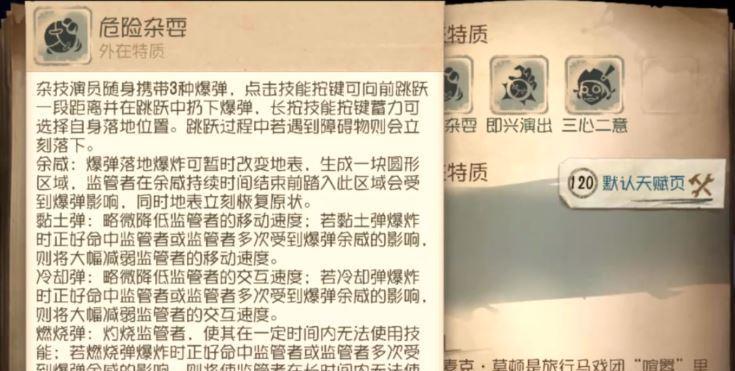 危险杂耍
外在特质
杂技演员随身携带3种爆弹，点击技能按键可向前跳跃
一段距离并在跳跃中扔下爆弹，长按技能按键蓄力可
选择自身落地位置。跳跃过程中若遇到障碍物则会立
刻落下。
余威：爆弹落地爆炸可暂时改变地表，生成一块圆形
区域，监管者在余威持续时间结束前踏入此区域会受
到爆弹影响，同时地表立刻恢复原状。
黏土弹：略微降低监管者的移动速度；若黏土弹爆炸
时正好命中监管者或监管者多次受到爆弹余威的影响，
则将大幅减弱监管者的移动速度。
冷却弹：略微降低监管者的交互速度；若冷却弹爆炸
时正好命中监管者或监管者多次受到爆弹余威的影响，
则将大幅减弱监管者的交互速度。
燃烧弹：灼烧监管者，使其在一定时间内无法使用技
能；若燃烧弹爆炸时正好命中监管者或监管者多次受
到爆弹余威的影响，则将使监管者在长时间内无法使
在特质
杂耍 即兴演出 三心二意
120 默认天赋页
在特质
麦克·莫顿是旅行马戏团“喧嚣”里